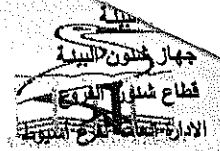 البيئة
جهاز شئون البيئة
قطاع شئون الفروع
الادارة العامة لفرع اسيوط